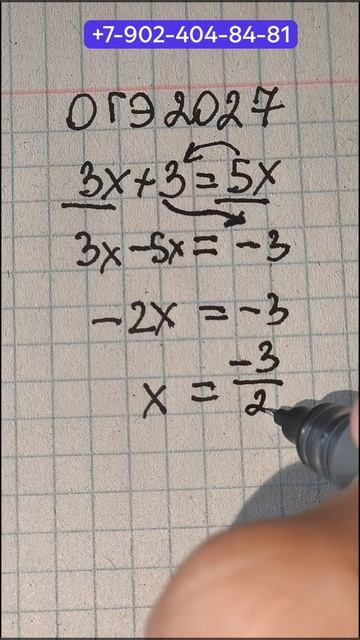 +7-902-404-84-81
ОГЭ 2027
3x + 3 = 5x
3x - 5x = -3
-2x = -3
x = -3/2